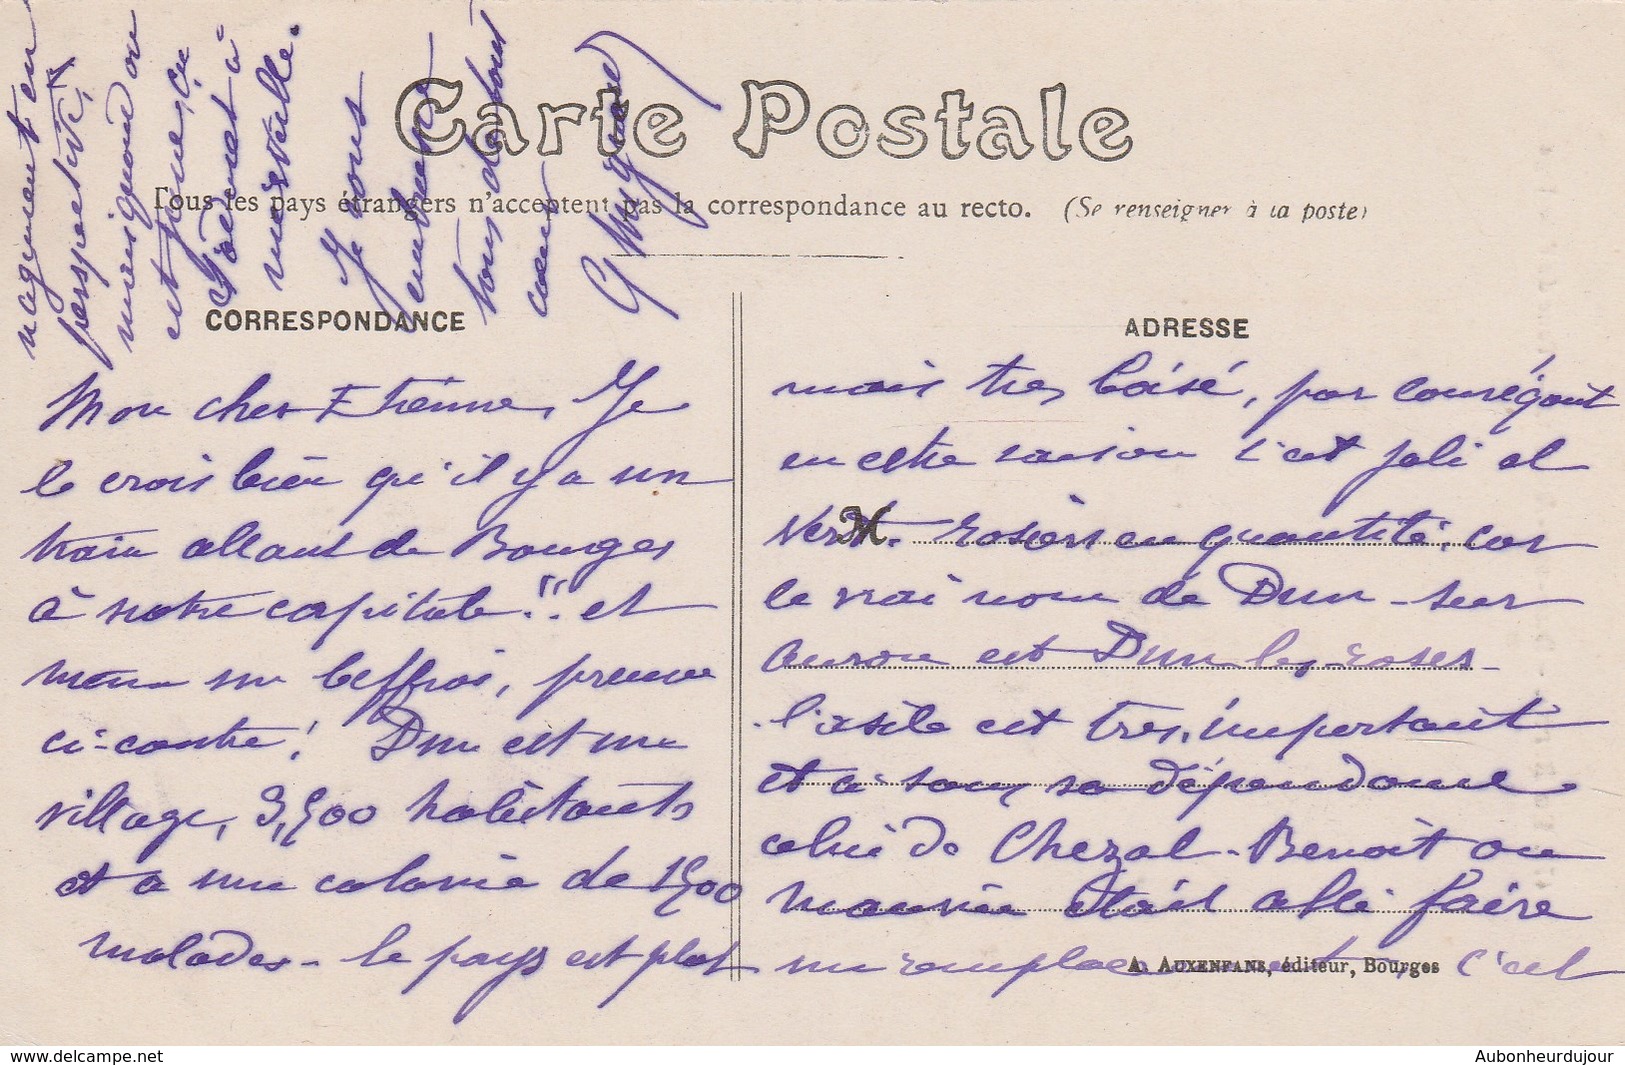 Carte Postale
Tous les pays étrangers n'acceptent pas la correspondance au recto. (Se renseigner à la poste)
CORRESPONDANCE
ADRESSE
Mon cher Etienne, Je
le crois bien qu'il y a un
train allant de Bourges
à notre capitale!! et
même un beffroi, preuve
ci-contre! Dun est un
village, 3,500 habitants
et a une colonie de 1500
malades - le pays est plat
mais très boisé, par conségant
en cette saison c'est joli et
vert. rosiers en quantité, car
le vrai nom de Dun-sur
auron est Dun les roses -
l'asile est très important
et a sous sa dépendance
celui de Chezal-Benoit ou
maurice était allé faire
un remplacement, c'est
vaguement en
perspective,
mais quand on
est jeune, ça
vous
embrasse
tous de tout
coeur
A. AUXENFANS, éditeur, Bourges
www.delcampe.net
Aubonheurdujour